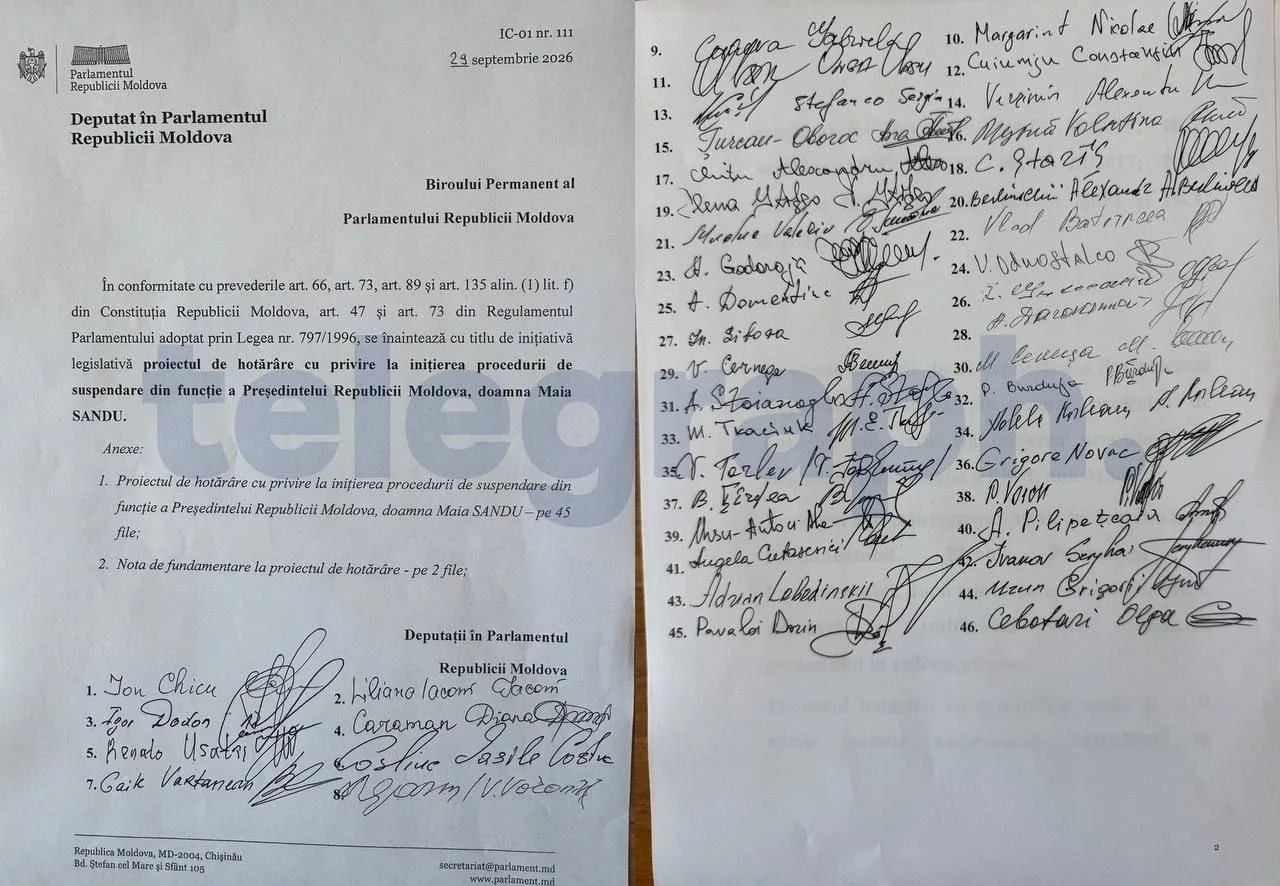 IC-01 nr. 111
29 septembrie 2026
Parlamentul
Republicii Moldova
Deputat în Parlamentul
Republicii Moldova
Biroului Permanent al
Parlamentului Republicii Moldova
În conformitate cu prevederile art. 66, art. 73, art. 89 și art. 135 alin. (1) lit. f)
din Constituția Republicii Moldova, art. 47 și art. 73 din Regulamentul
Parlamentului adoptat prin Legea nr. 797/1996, se înaintează cu titlu de inițiativă
legislativă proiectul de hotărâre cu privire la inițierea procedurii de
suspendare din funcție a Președintelui Republicii Moldova, doamna Maia
SANDU.
telegraph.
Anexe:
1. Proiectul de hotărâre cu privire la inițierea procedurii de suspendare din
funcție a Președintelui Republicii Moldova, doamna Maia SANDU – pe 45
file;
2. Nota de fundamentare la proiectul de hotărâre - pe 2 file;
Deputații în Parlamentul
Republicii Moldova
1. Ion Chicu
2. Liliana Iacom Iacom
3. Igor Dodon
4. Caraman Diana
5. Renato Usatîi
Costiuc Vasile Costiuc
7. Gaik Vartanean
8.
Republica Moldova, MD-2004, Chișinău
Bd. Ștefan cel Mare și Sfânt 105
secretariat@parlament.md
www.parlament.md
9. Gabriela
10. Margarint Nicolae
11.
12. Cuiumju Constantin
13. Stefaneo Sergiu
14. Alexandru
15. Țurcan-Oboroc Ana
16. Valentina
17. Alexandru
18. C. Starîș
19. Elena
20. Berlinschii Alexandr A. Berlinschii
21. Valeriu
22. Vlad Batrîncea
23. A. Godoroja
24. V. Odnostalco
25. A. Domentiuc
26.
27. In. Sîtova
28.
29. V. Cernega
30. M.
31. A. Stoianoglo A. Stoianoglo
32. P. Burduja P. Burduja
33. M. Tkaciuk
34.
35. V. Tarlev
36. Grigore Novac
37. B. Țîrdea
38. D. Voron
39. Ursu-Antoci
40. A. Pilipețcaia
41. Angela Cutasevici
42. Ivanov Serghei
43. Adrian Lebedinschii
44. Uzun Grigorii
45. Pavaloi Dorin
46. Cebotari Olga
2